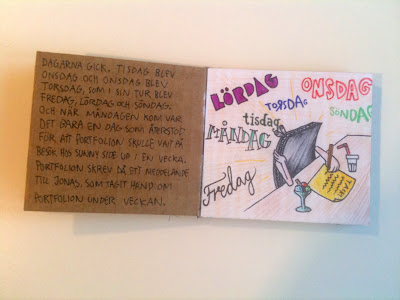 DAGARNA GICK. TISDAG BLEV
ONSDAG OCH ONSDAG BLEV
TORSDAG, SOM I SIN TUR BLEV
FREDAG, LÖRDAG OCH SÖNDAG.
OCH NÄR MÅNDAGEN KOM VAR
DET BARA EN DAG SOM ÅTERSTOD
FÖR ATT PORTFOLION SKULLE VARIT PÅ
BESÖK HOS SUNNY SIDE UP I EN VECKA.
PORTFOLION SKREV DÅ ETT MEDDELANDE
TILL JONAS, SOM TAGIT HAND OM
PORTFOLION UNDER VECKAN.
LÖRDAG
ONSDAG
TORSDAG
SÖNDAG
tisdag
MÅNDAG
Fredag